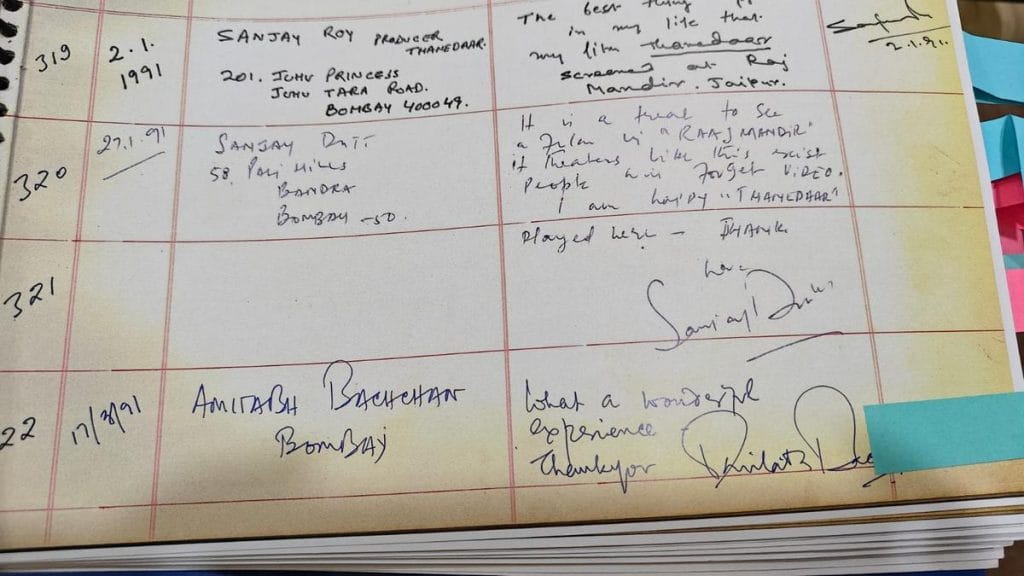 319
2.1.
1991
SANJAY ROY PRODUCER
THANEDAAR.
201. JUHU PRINCESS
JUHU TARA ROAD.
BOMBAY 400049.
The best thing
in my life that
my film Thanedaar
screened at Raj
Mandir. Jaipur.
2.1.91.
320
27.1.91
SANJAY DUTT
58, PALI HILLS
BANDRA
BOMBAY -50.
It is a treat to see
a film in a "RAAJ MANDIR"
if theaters like this exist
people will forget VIDEO.
I am happy "THANEDAAR"
played here - THANK
321
Sanjay Dutt
22
17/3/91
AMITABH BACHCHAN
BOMBAY
What a wonderful
experience -
Thankyou